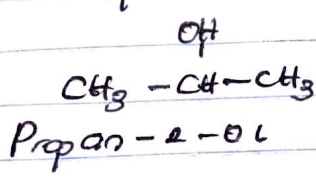 OH
CH₃ - CH - CH₃
Propan - 2 - Ol